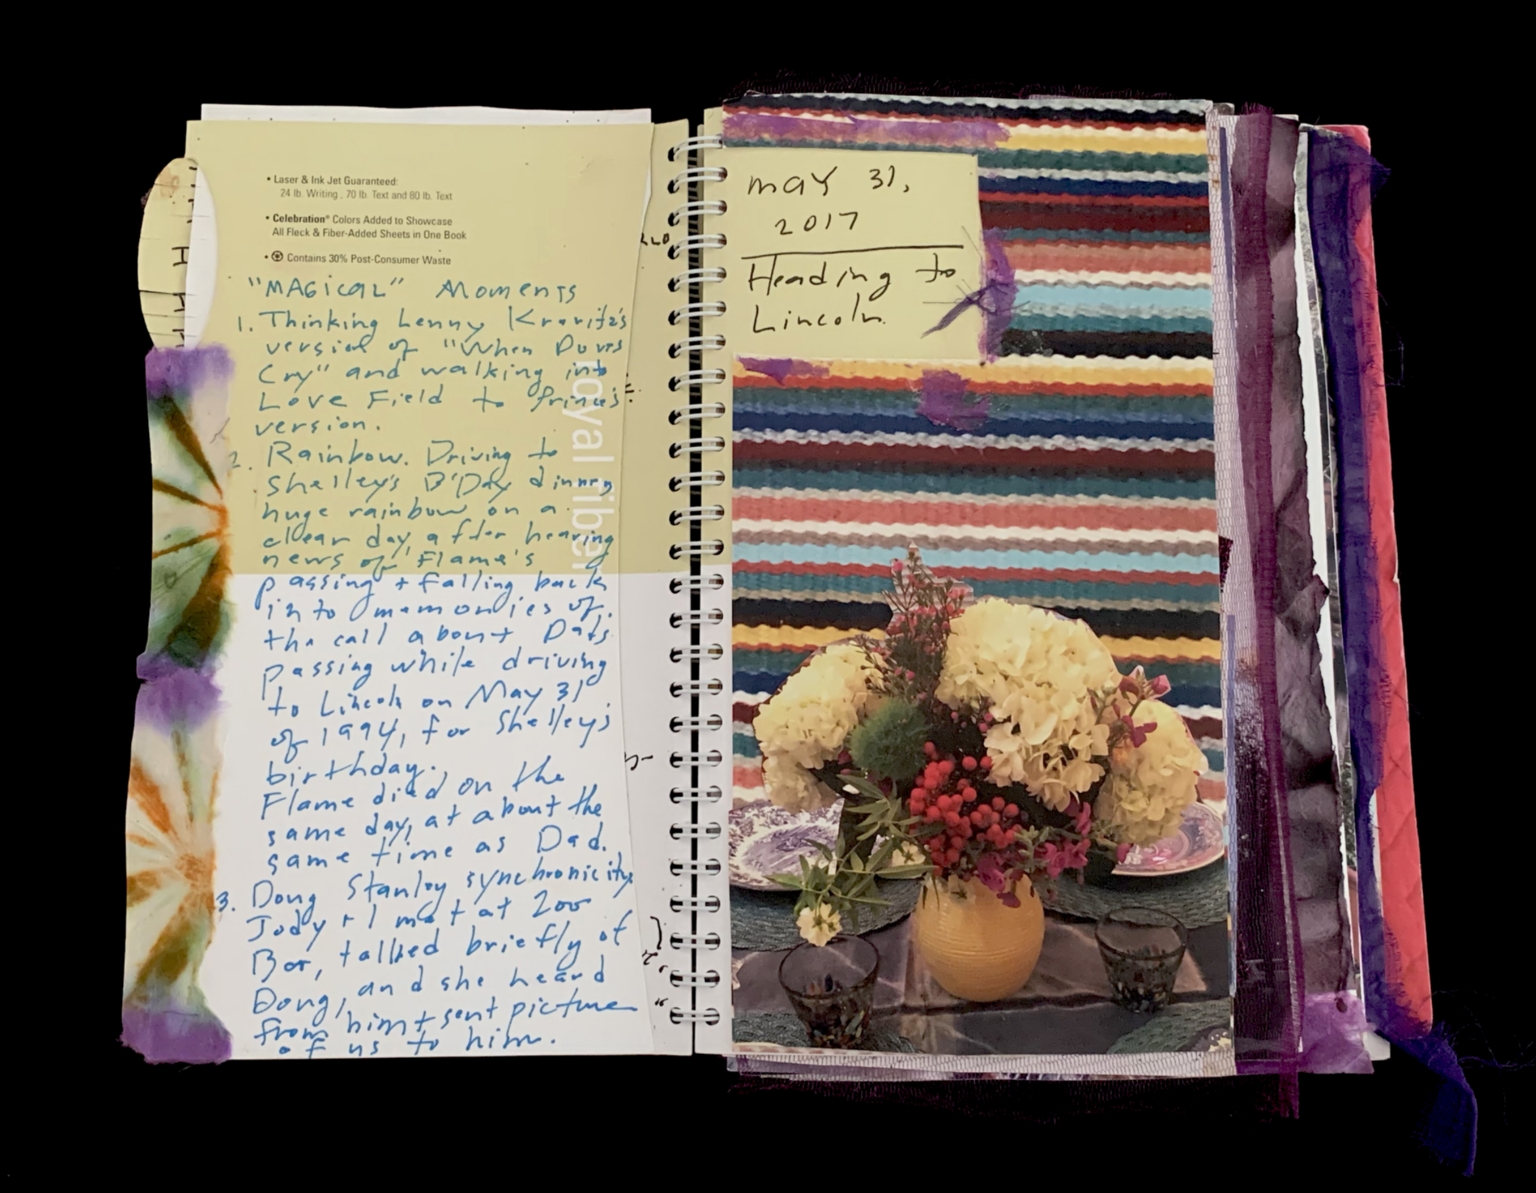 • Laser & Ink Jet Guaranteed:
24 lb. Writing, 70 lb. Text and 80 lb. Text
• Celebration® Colors Added to Showcase
All Fleck & Fiber-Added Sheets in One Book
• Contains 30% Post-Consumer Waste
"MAGICAL" Moments
1. Thinking Lenny Kravitz's
version of "When Doves
Cry" and walking into
Love Field to Prince's
version.
2. Rainbow. Driving to
Shelley's B'Day dinner,
huge rainbow on a
clear day after hearing
news of Flame's
passing + falling back
into memories of
the call about Dad's
passing while driving
to Lincoln on May 31
of 1994, for Shelley's
birthday.
Flame died on the
same day, at about the
same time as Dad.
3. Doug Stanley synchronicity
Jody + I met at Zoo
Bar, talked briefly of
Doug, and she heard
from him + sent picture
of us to him.
royal fiber
MAY 31,
2017
Heading to
Lincoln.